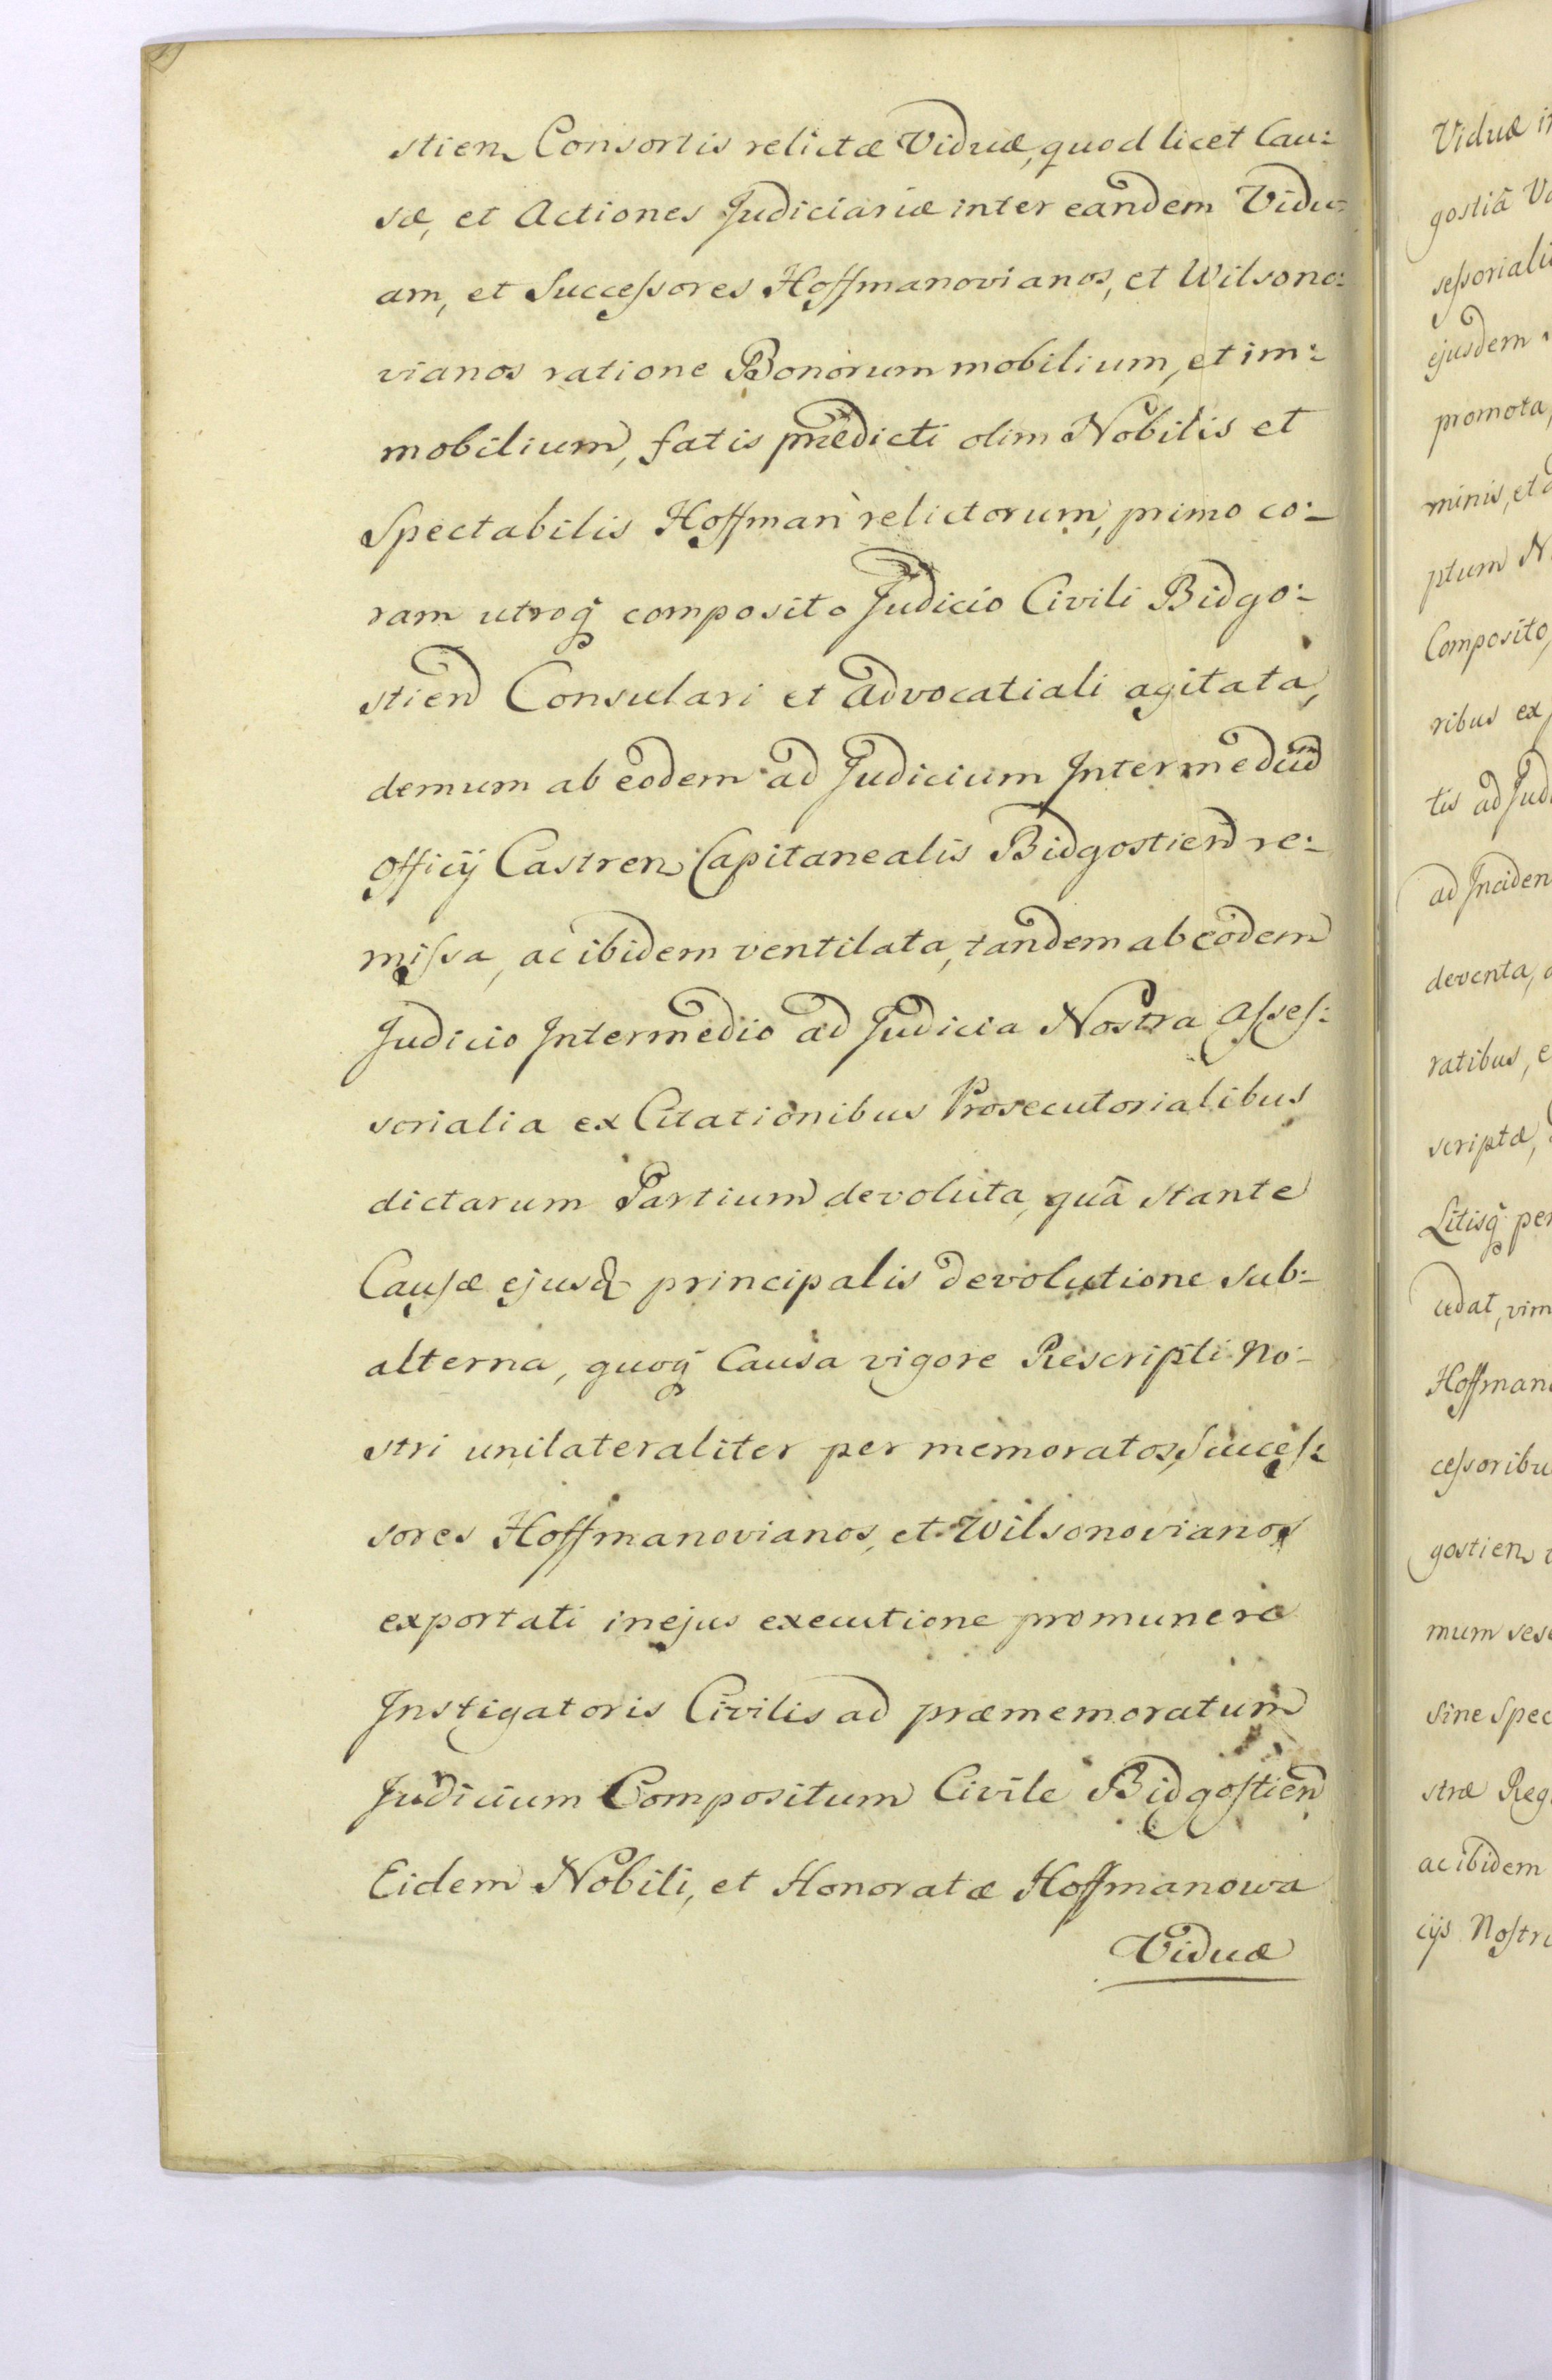 stien Consortis relictæ Viduæ, quod licet Cau:
sæ, et Actiones Judiciariæ inter eandem Vidu:
am, et Successores Hoffmanovianos, et Wilsono:
vianos ratione Bonorum mobilium, et im:
mobilium, fatis prædicti olim Nobilis et
Spectabilis Hoffman relictorum, primo co:
ram utroq̃ composito Judicio Civili Bidgo:
stien Consulari et Advocatiali agitata,
demum ab eodem ad Judicium Intermediũ
Officij Castren Capitanealis Bidgostien re:
missa, ac ibidem ventilata, tandem ab eodem
Judicio Intermedio ad Judicia Nostra Asses:
sorialia ex Citationibus Prosecutorialibus
dictarum Partium devoluta, quâ stante
Causæ ejusd principalis devolutione sub:
alterna, quoq̃ Causa vigore Rescripti No:
stri unilateraliter per memoratos Succes:
sores Hoffmanovianos, et Wilsonovianos
exportati in ejus executione pro munere
Instigatoris Civilis ad præmemoratum
Judicium Compositum Civile Bidgostien
Eidem Nobili, et Honoratæ Hoffmanowa
Viduæ
Viduæ
gostiã
sessoriali
ejusdem
promota,
minis, et
ptum N
Composito,
ribus ex
tis ad Jud
ad Inciden
deventa,
ratibus, e
scriptæ,
Litisq̃ per
cedat, vim
Hoffman
cessoribu
gostien
mum ses
sine Spec
stræ Reg
ac ibidem
cijs Nostr